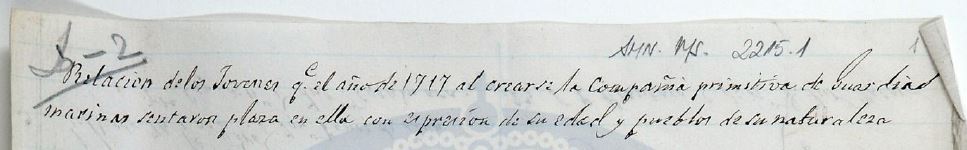 J-2
AHN. Ms. 2215.1
1
Relacion de los Jovenes q.e el año de 1717 al crearse la Compañia primitiva de Guardias
marinas sentaron plaza en ella con espresión de su edad y pueblos de su naturaleza